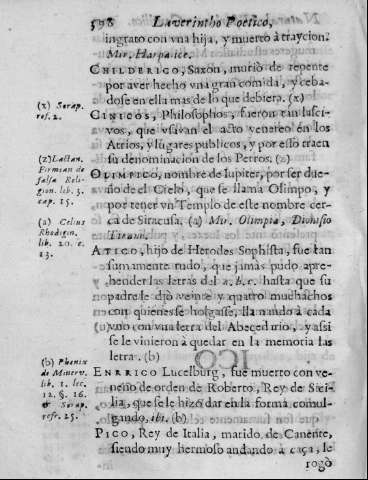 598 Laverintho Poetico,
ingrato con vna hija, y muerto à traycion.
Mir. Harpalice.
CHILDERICO, Saxon, muriò de repente
por aver hecho vna gran comida, y ceba-
dose en ella mas de lo que debiera. (x)
(x) Serap.
ref. 2.
CINICOS, Philosophos, fueron tan lusci-
vos, que vsavan el acto venereo en los
Atrios, y lugares publicos, y por esto traen
su denominacion de los Perros. (z)
(z) Lactan.
Firmian de
falsa Reli-
gion. lib. 3.
cap. 15.
OLIMPICO, nombre de Iupiter, por ser due-
ño de el Cielo, que se llama Olimpo, y
por tener vn Templo de este nombre cer-
ca de Siracusa. (a) Mir. Olimpia, Dionisio
Tirano.
(a) Celius
Rhodigin.
lib. 20. c.
13.
ATICO, hijo de Herodes Sophista, fue tan
sumamente rudo, que jamàs pudo apre-
hender las letras del a. b. c. hasta que su
padre le diò veinte y quatro muchachos
con quienes se holgasse, llamando à cada
vno con vna letra del Abecedario, y assi
se le vinieron à quedar en la memoria las
letra. (b)
(b) Phenix
de Minerv.
lib. 1. lec.
12. §. 16.
& Serap.
refr. 25.
ENRRICO Lucelburg, fue muerto con ve-
neno de orden de Roberto, Rey de Sici-
lia, que se le hizo dar en la forma comul-
gando. ibi. (b)
PICO, Rey de Italia, marido de Canente,
siendo muy hermoso andando à caça, le
rogò